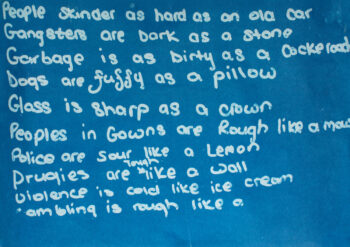 People skinder as hard as an old car
Gangsters are Dark as a stone
Garbage is as Dirty as a Cockeroad
Dogs are fuffy as a pillow
Glass is sharp as a crown
Peoples in Gowns are Rough like a
Police are sour like a Lemon
Drugies are Tough like a wall
violence is cold like ice cream
ambling is rough like a